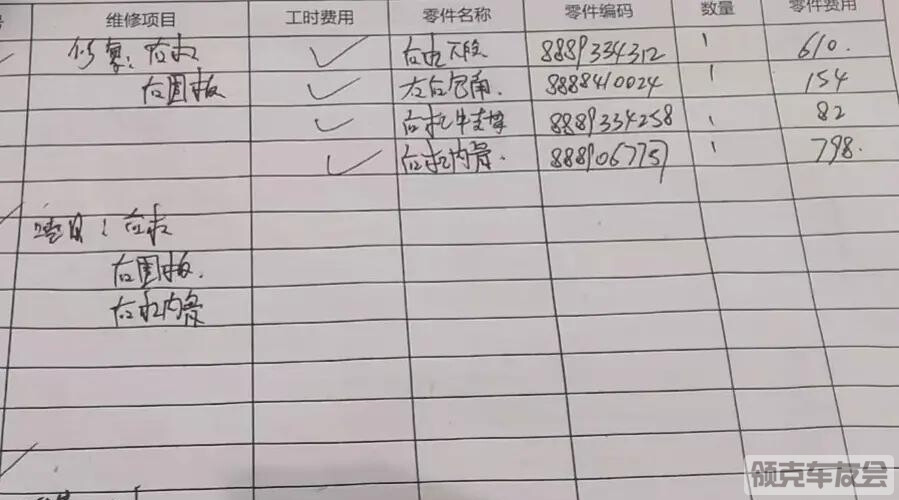 维修项目 工时费用 零件名称 零件编码 数量 零件费用
修复：后杠 ✓ 后杠下段 8889334312 1 610.
后围板 ✓ 左后包角. 8888410024 1 154
✓ 后杠牛支撑 8889334258 1 82
✓ 后杠内骨. 888906775 1 798.
喷漆：后杠
后围板.
后杠内骨
领克车友会